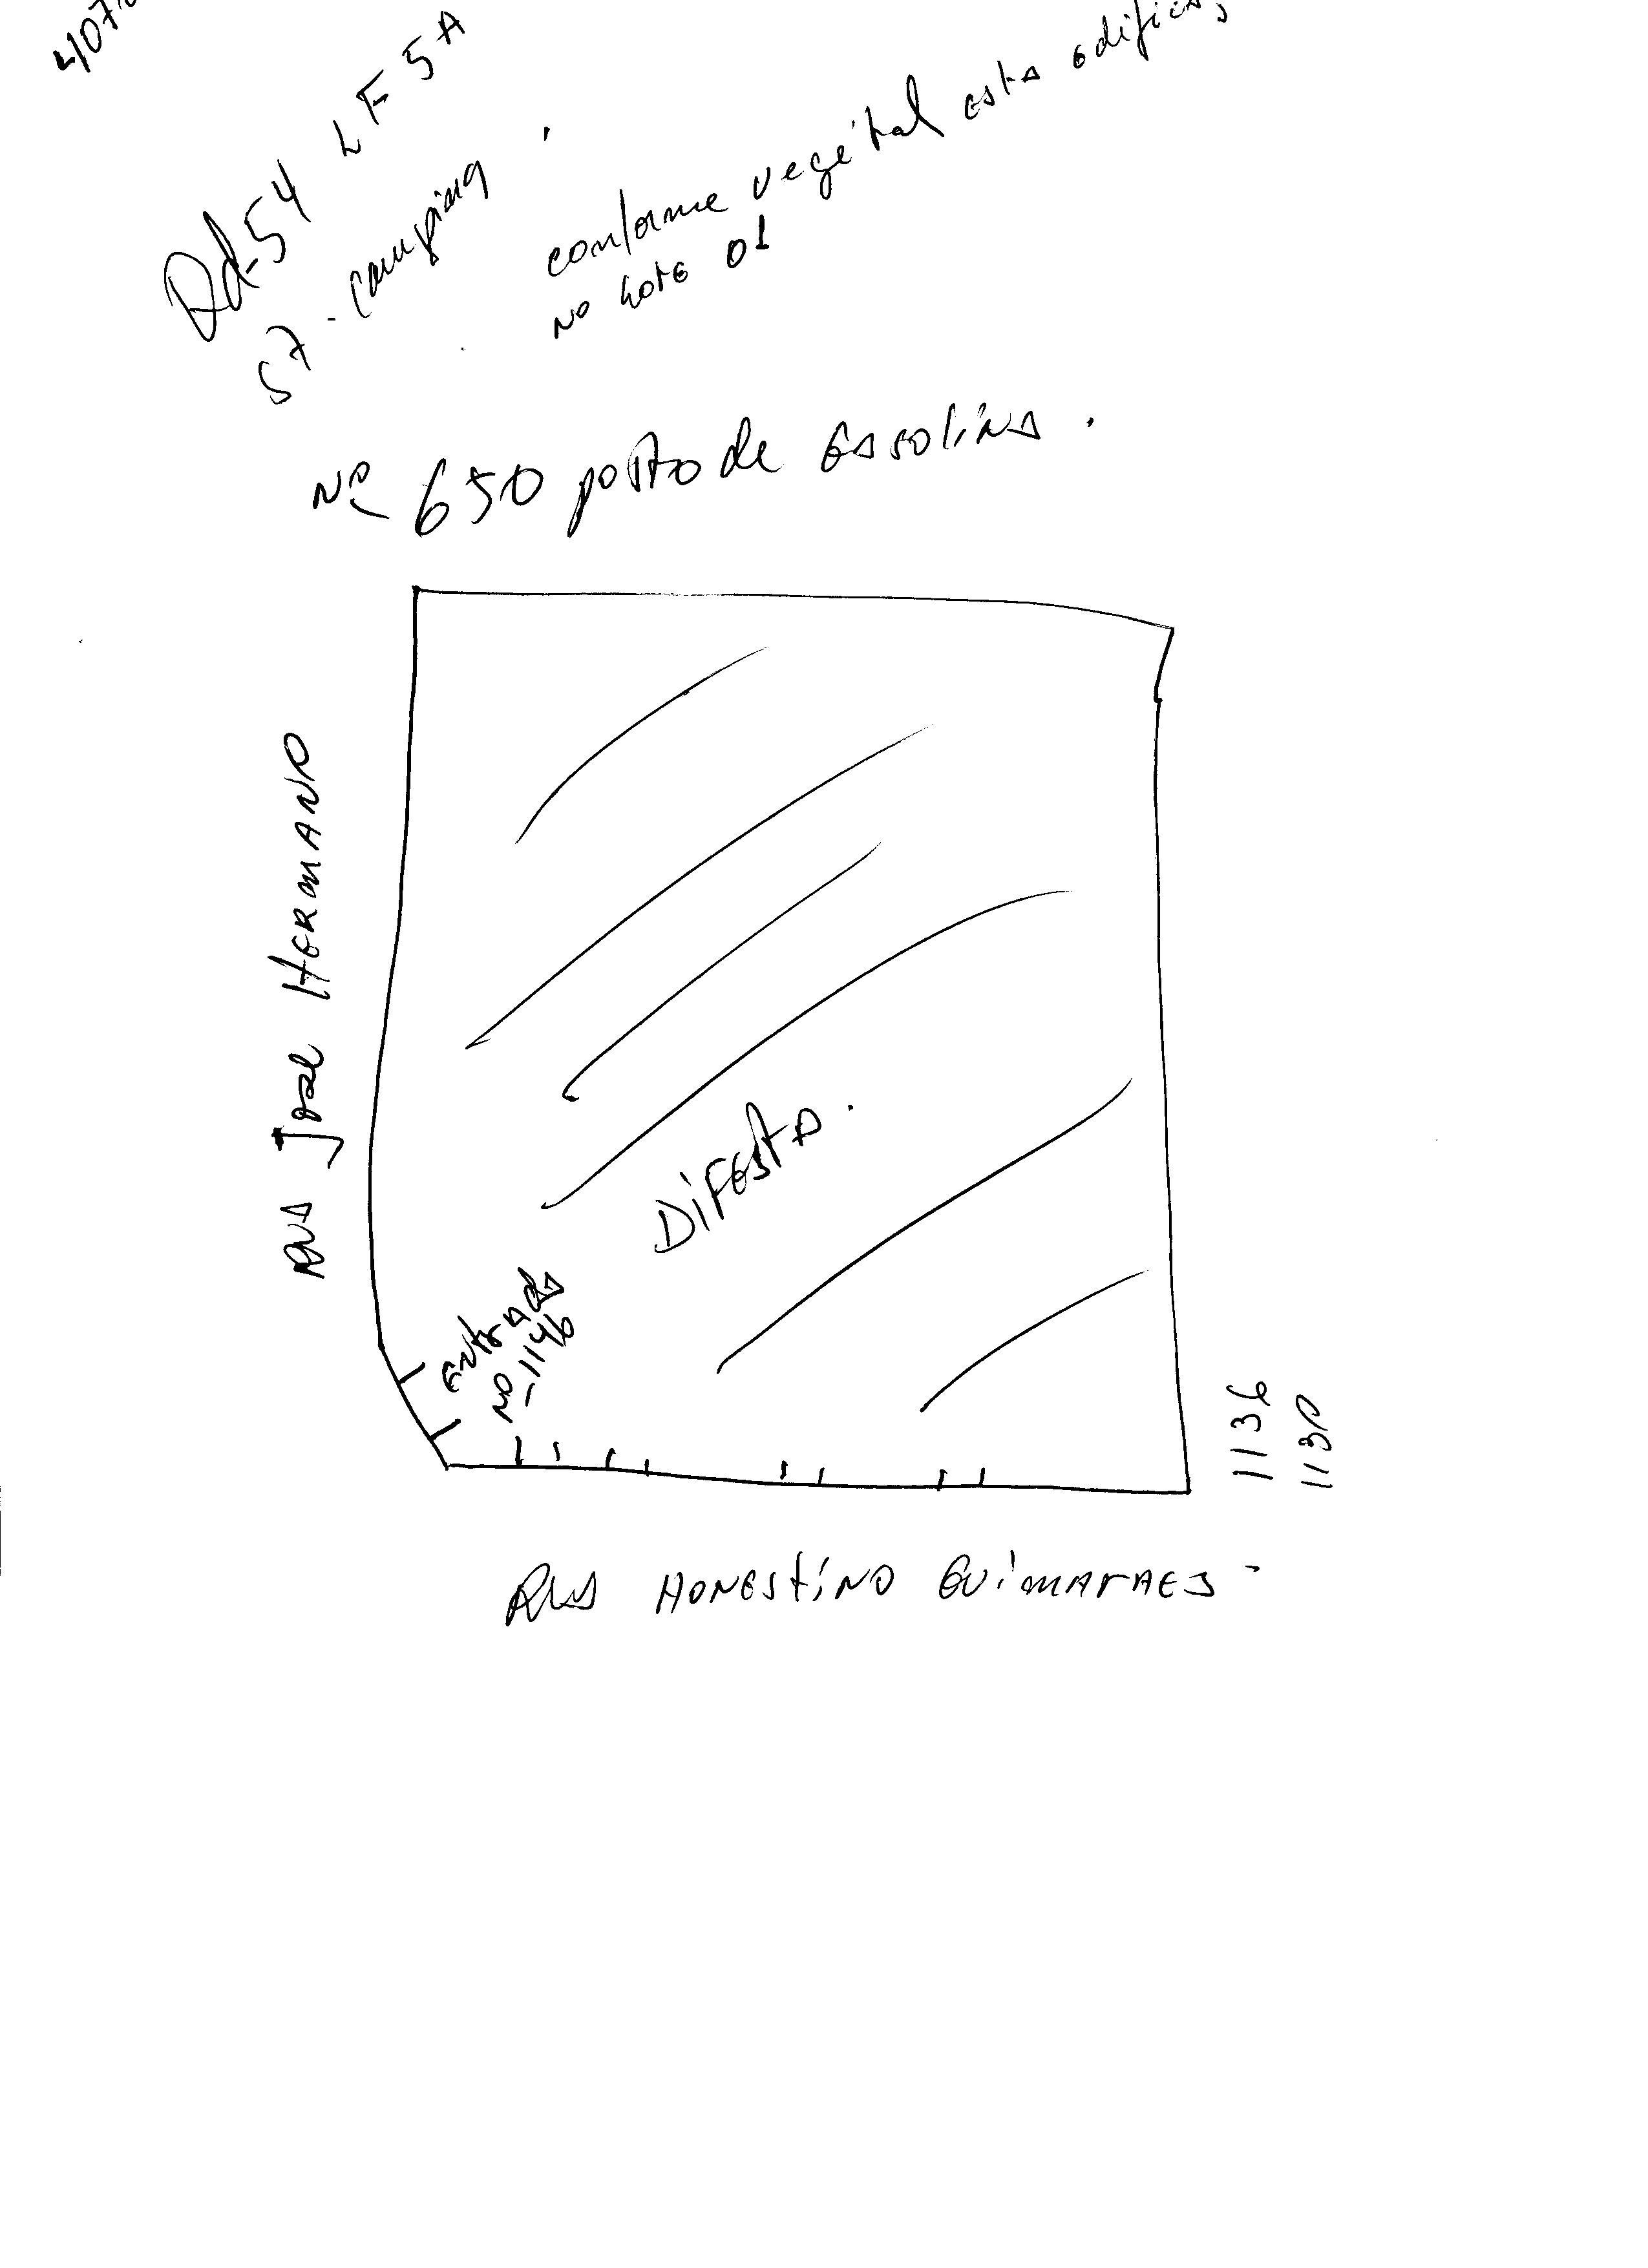 Qd-54 LT 5A
57 - Campinas
conforme vegetal esta edific
no lote 01
Nº 650 posto de Gasolina.
RUA José HERMANO
DifestA.
entrada
Nº 1146
1136
1130
RUA HONEStiNO GUiMARAES